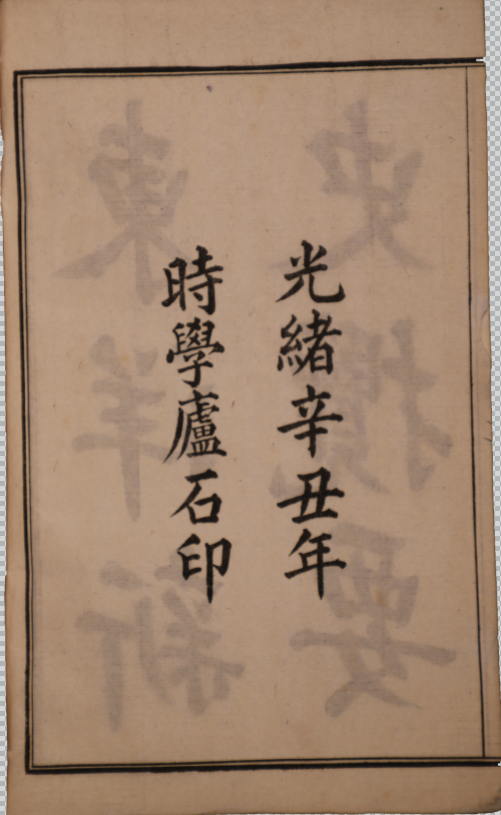 光緒辛丑年
時學廬石印